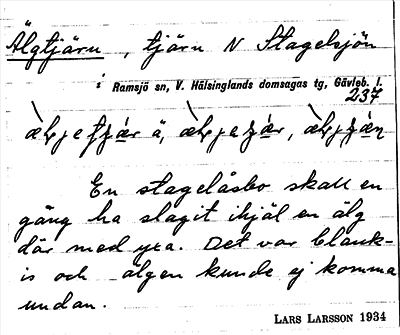 Älgtjärn, tjärn N Stagelsjön
i Ramsjö sn, V. Hälsinglands domsagas tg, Gävleb. l.
237
ä,
En stagelåsbo skall en
gång ha slagit ihjäl en älg
där med yxa. Det var blank-
is och älgen kunde ej komma
undan.
LARS LARSSON 1934